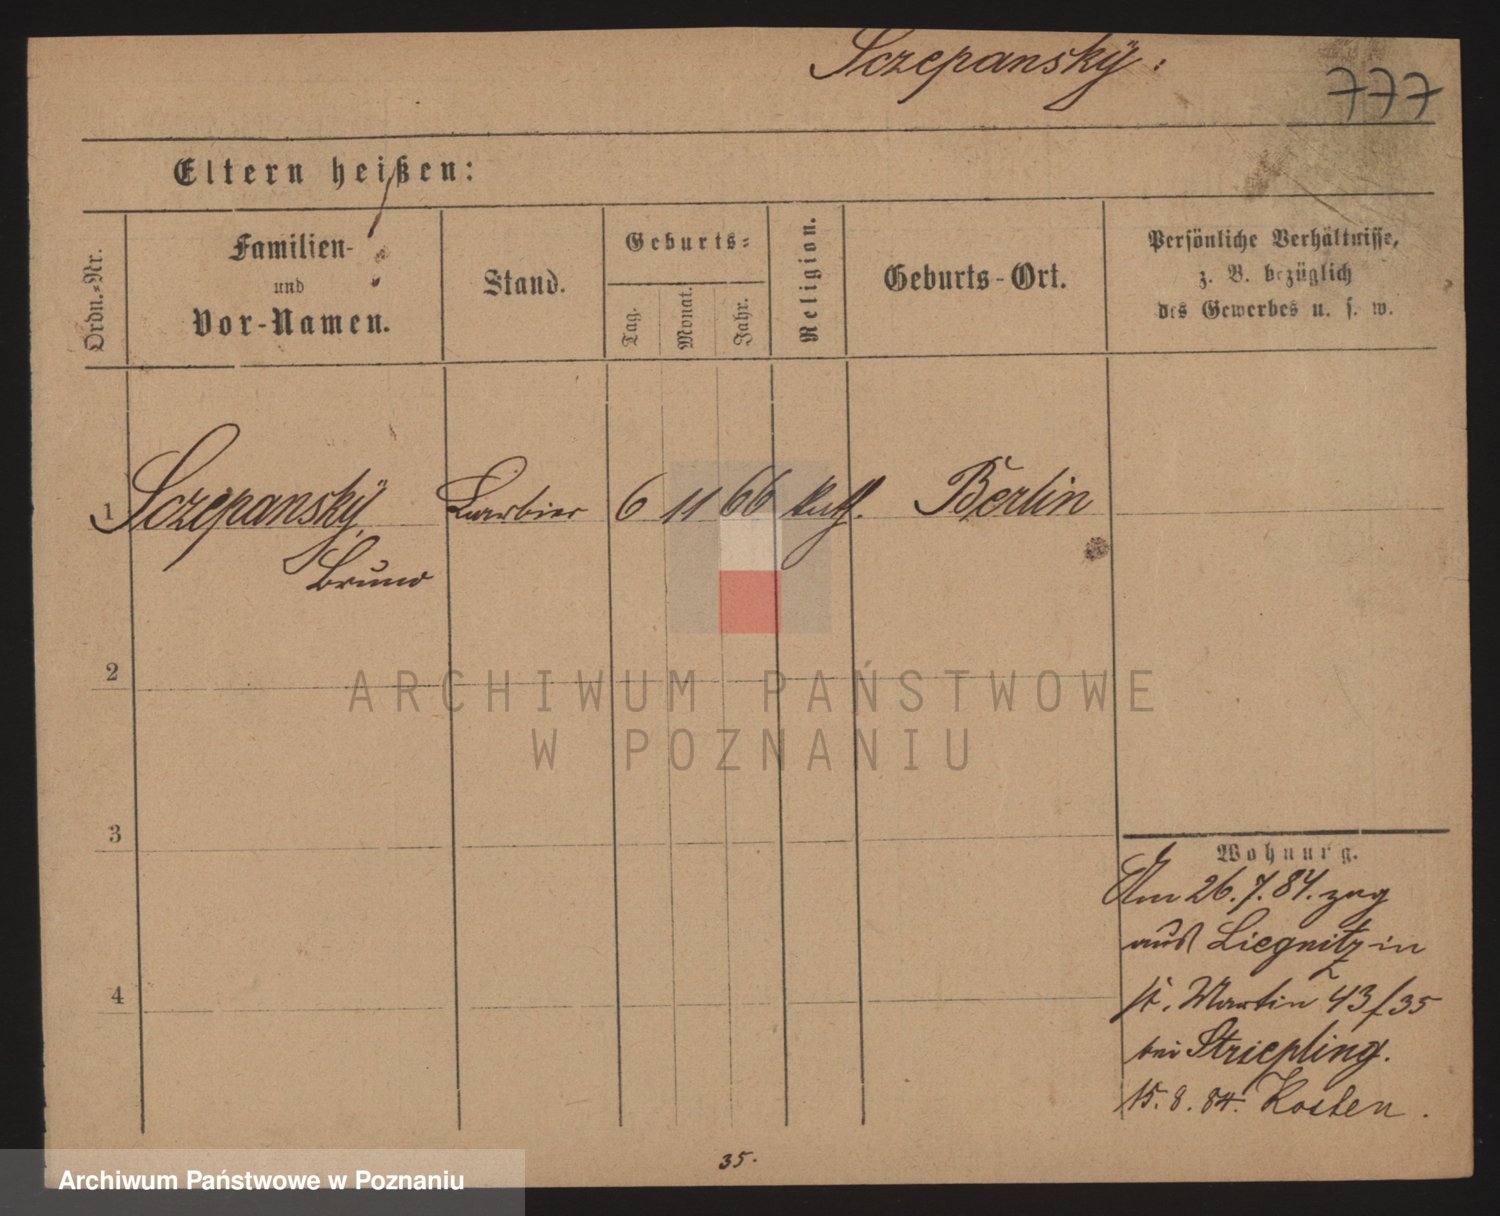 Sczepansky:
777
Eltern heißen:
Ordn.-Nr.
Familien-
und
Vor-Namen.
Stand.
Geburts-
Tag.
Monat.
Jahr.
Religion.
Geburts-Ort.
Persönliche Verhältnisse,
z. B. bezüglich
des Gewerbes u. s. w.
1 Sczepansky, Barbier 6 11 66 kath. Berlin
Bruno
2
ARCHIWUM PAŃSTWOWE
W POZNANIU
3
Wohnung.
Am 26.7.84. zog
aus Liegnitz in
4
St. Martin 43/35
bei Striepling.
15.8.84. Kosten.
35.
Archiwum Państwowe w Poznaniu